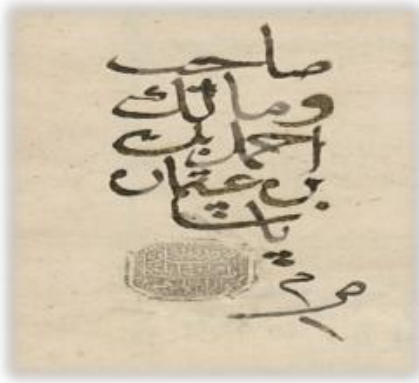 صاحب
ومالك
احمد بك
بن عثمان
پاشا